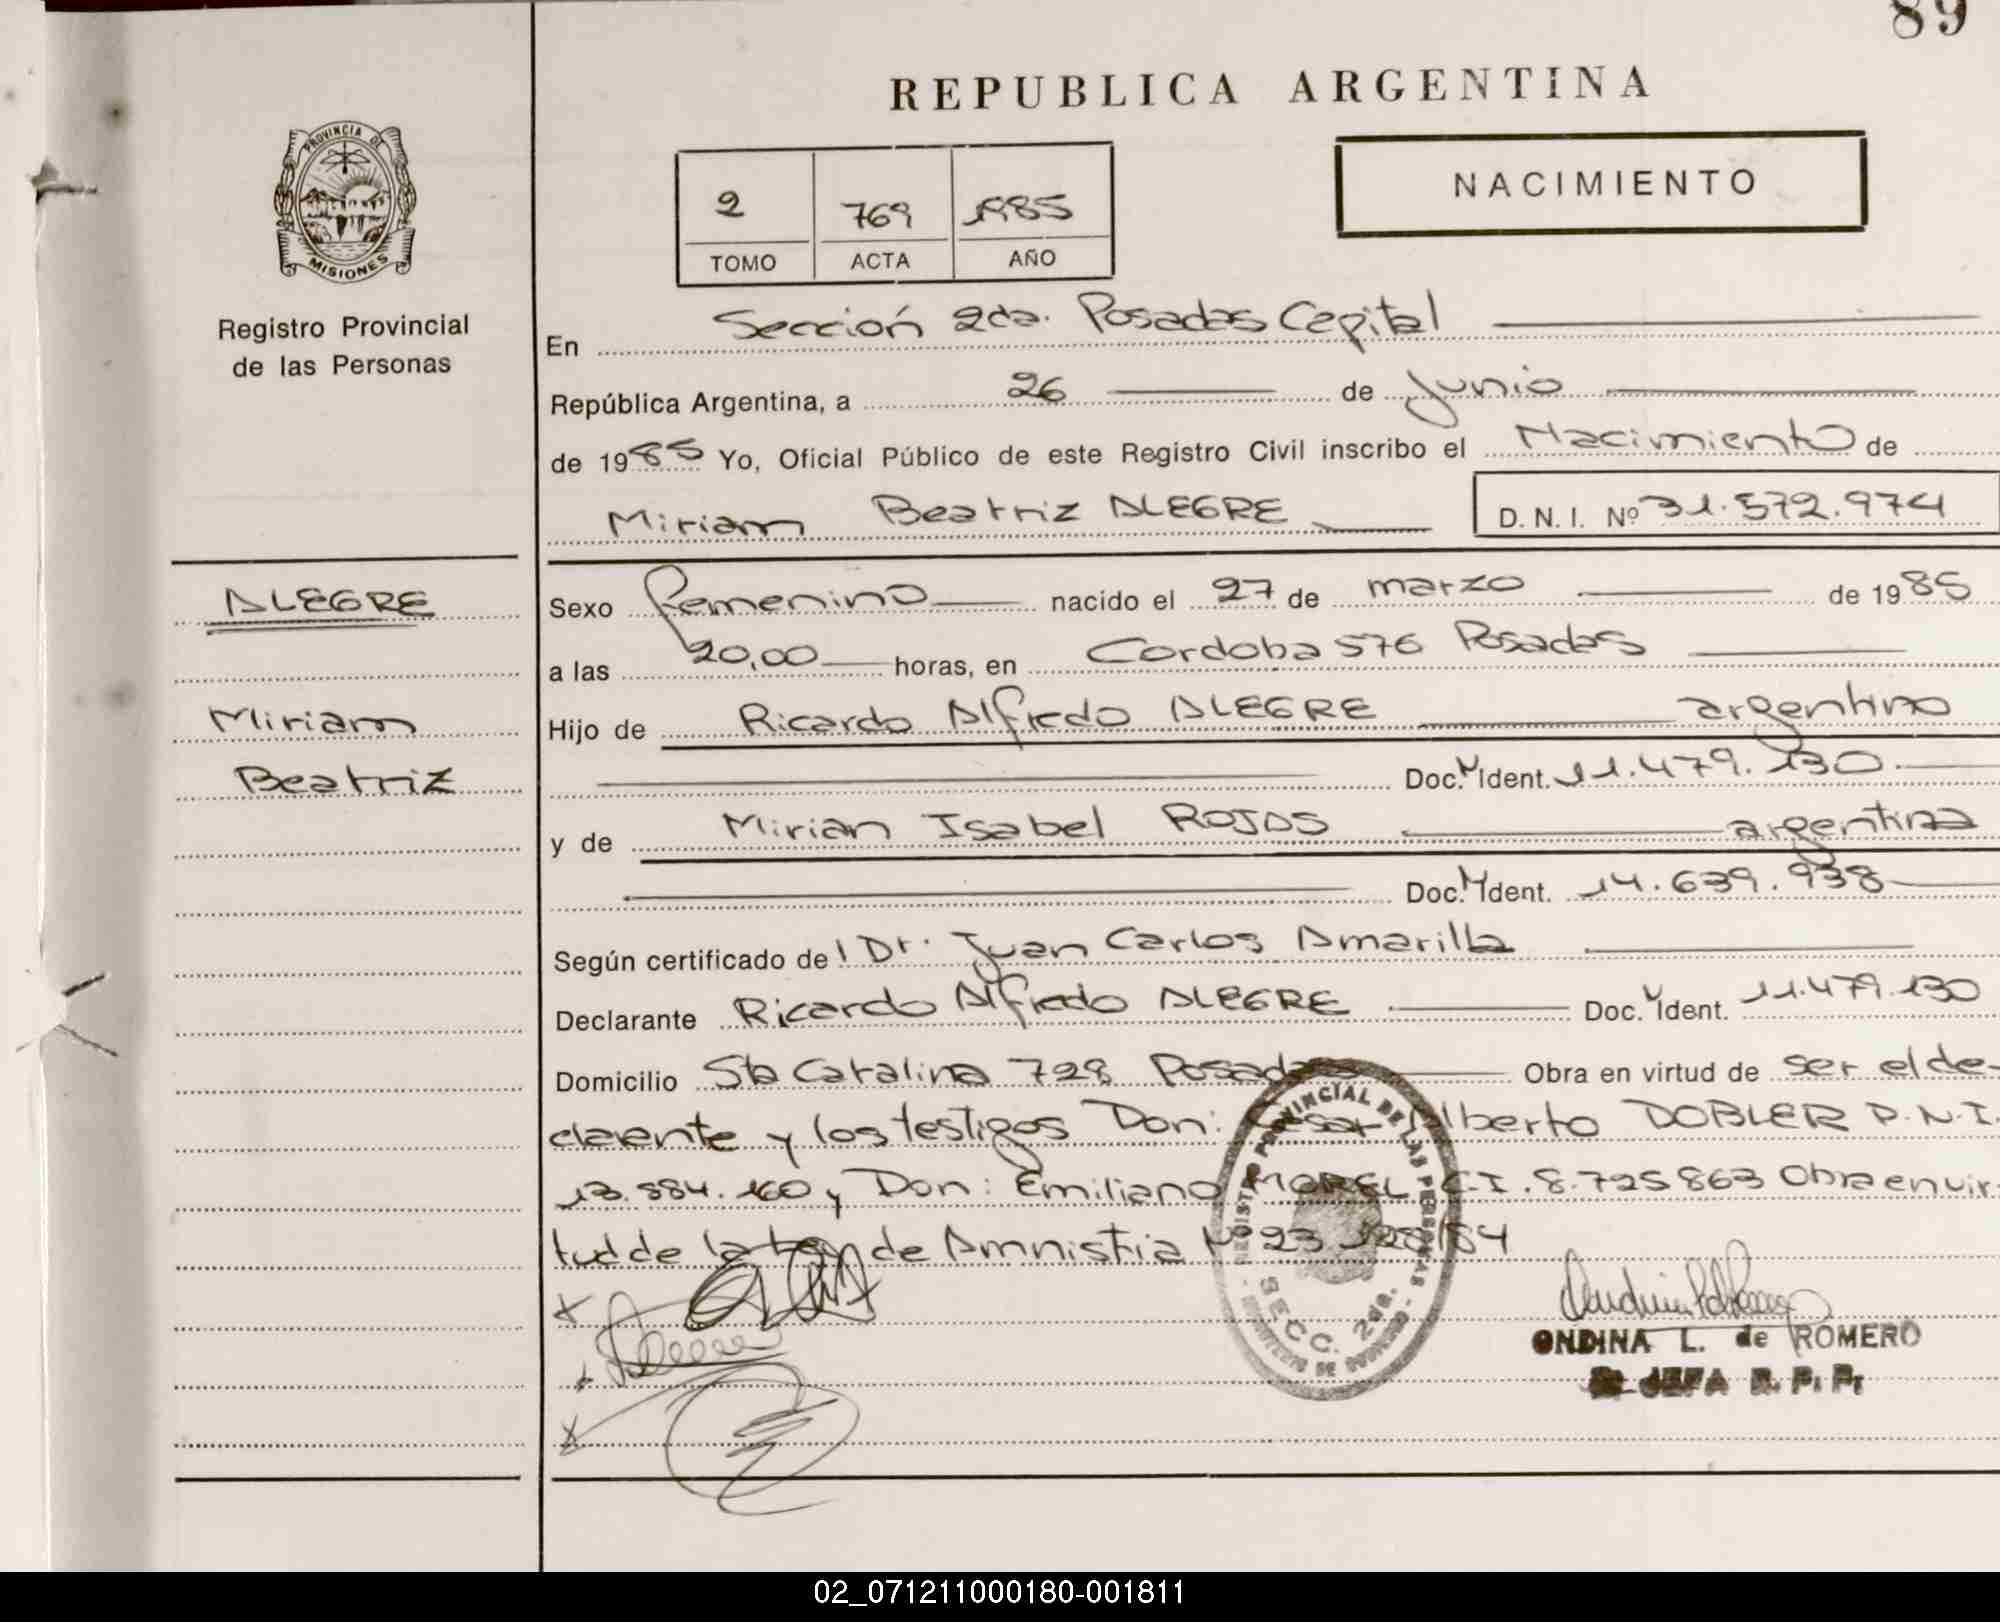 89
REPUBLICA ARGENTINA
PROVINCIA DE MISIONES
NACIMIENTO
2 769 1985
TOMO ACTA AÑO
Registro Provincial
de las Personas
En Sección 2da. Posadas Capital
República Argentina, a 26 de Junio
de 1985 Yo, Oficial Público de este Registro Civil inscribo el Nacimiento de
Miriam Beatriz ALEGRE D. N. I. Nº 31.572.974
ALEGRE
Miriam
Beatriz
Sexo femenino nacido el 27 de marzo de 1985
a las 20,00 horas, en Cordoba 576 Posadas
Hijo de Ricardo Alfredo ALEGRE argentino
Doc. Ident. 11.479.130
y de Mirian Isabel ROJAS argentina
Doc. Ident. 14.639.938
Según certificado de l Dr. Juan Carlos Amarilla
Declarante Ricardo Alfredo ALEGRE Doc. Ident. 11.479.130
Domicilio Sta Catalina 728 Posadas Obra en virtud de ser el de-
clarente y los testigos Don: Cesar Alberto DOBLER D.N.I.
13.884.160 y Don: Emiliano MOREL C.I. 8.725863 Obra en vir-
tud de la Ley de Amnistia Nº 23.128/84
REGISTRO PROVINCIAL DE LAS PERSONAS
SECC. 2da.
ONDINA L. de ROMERO
JEFA R. P. P.
02_071211000180-001811